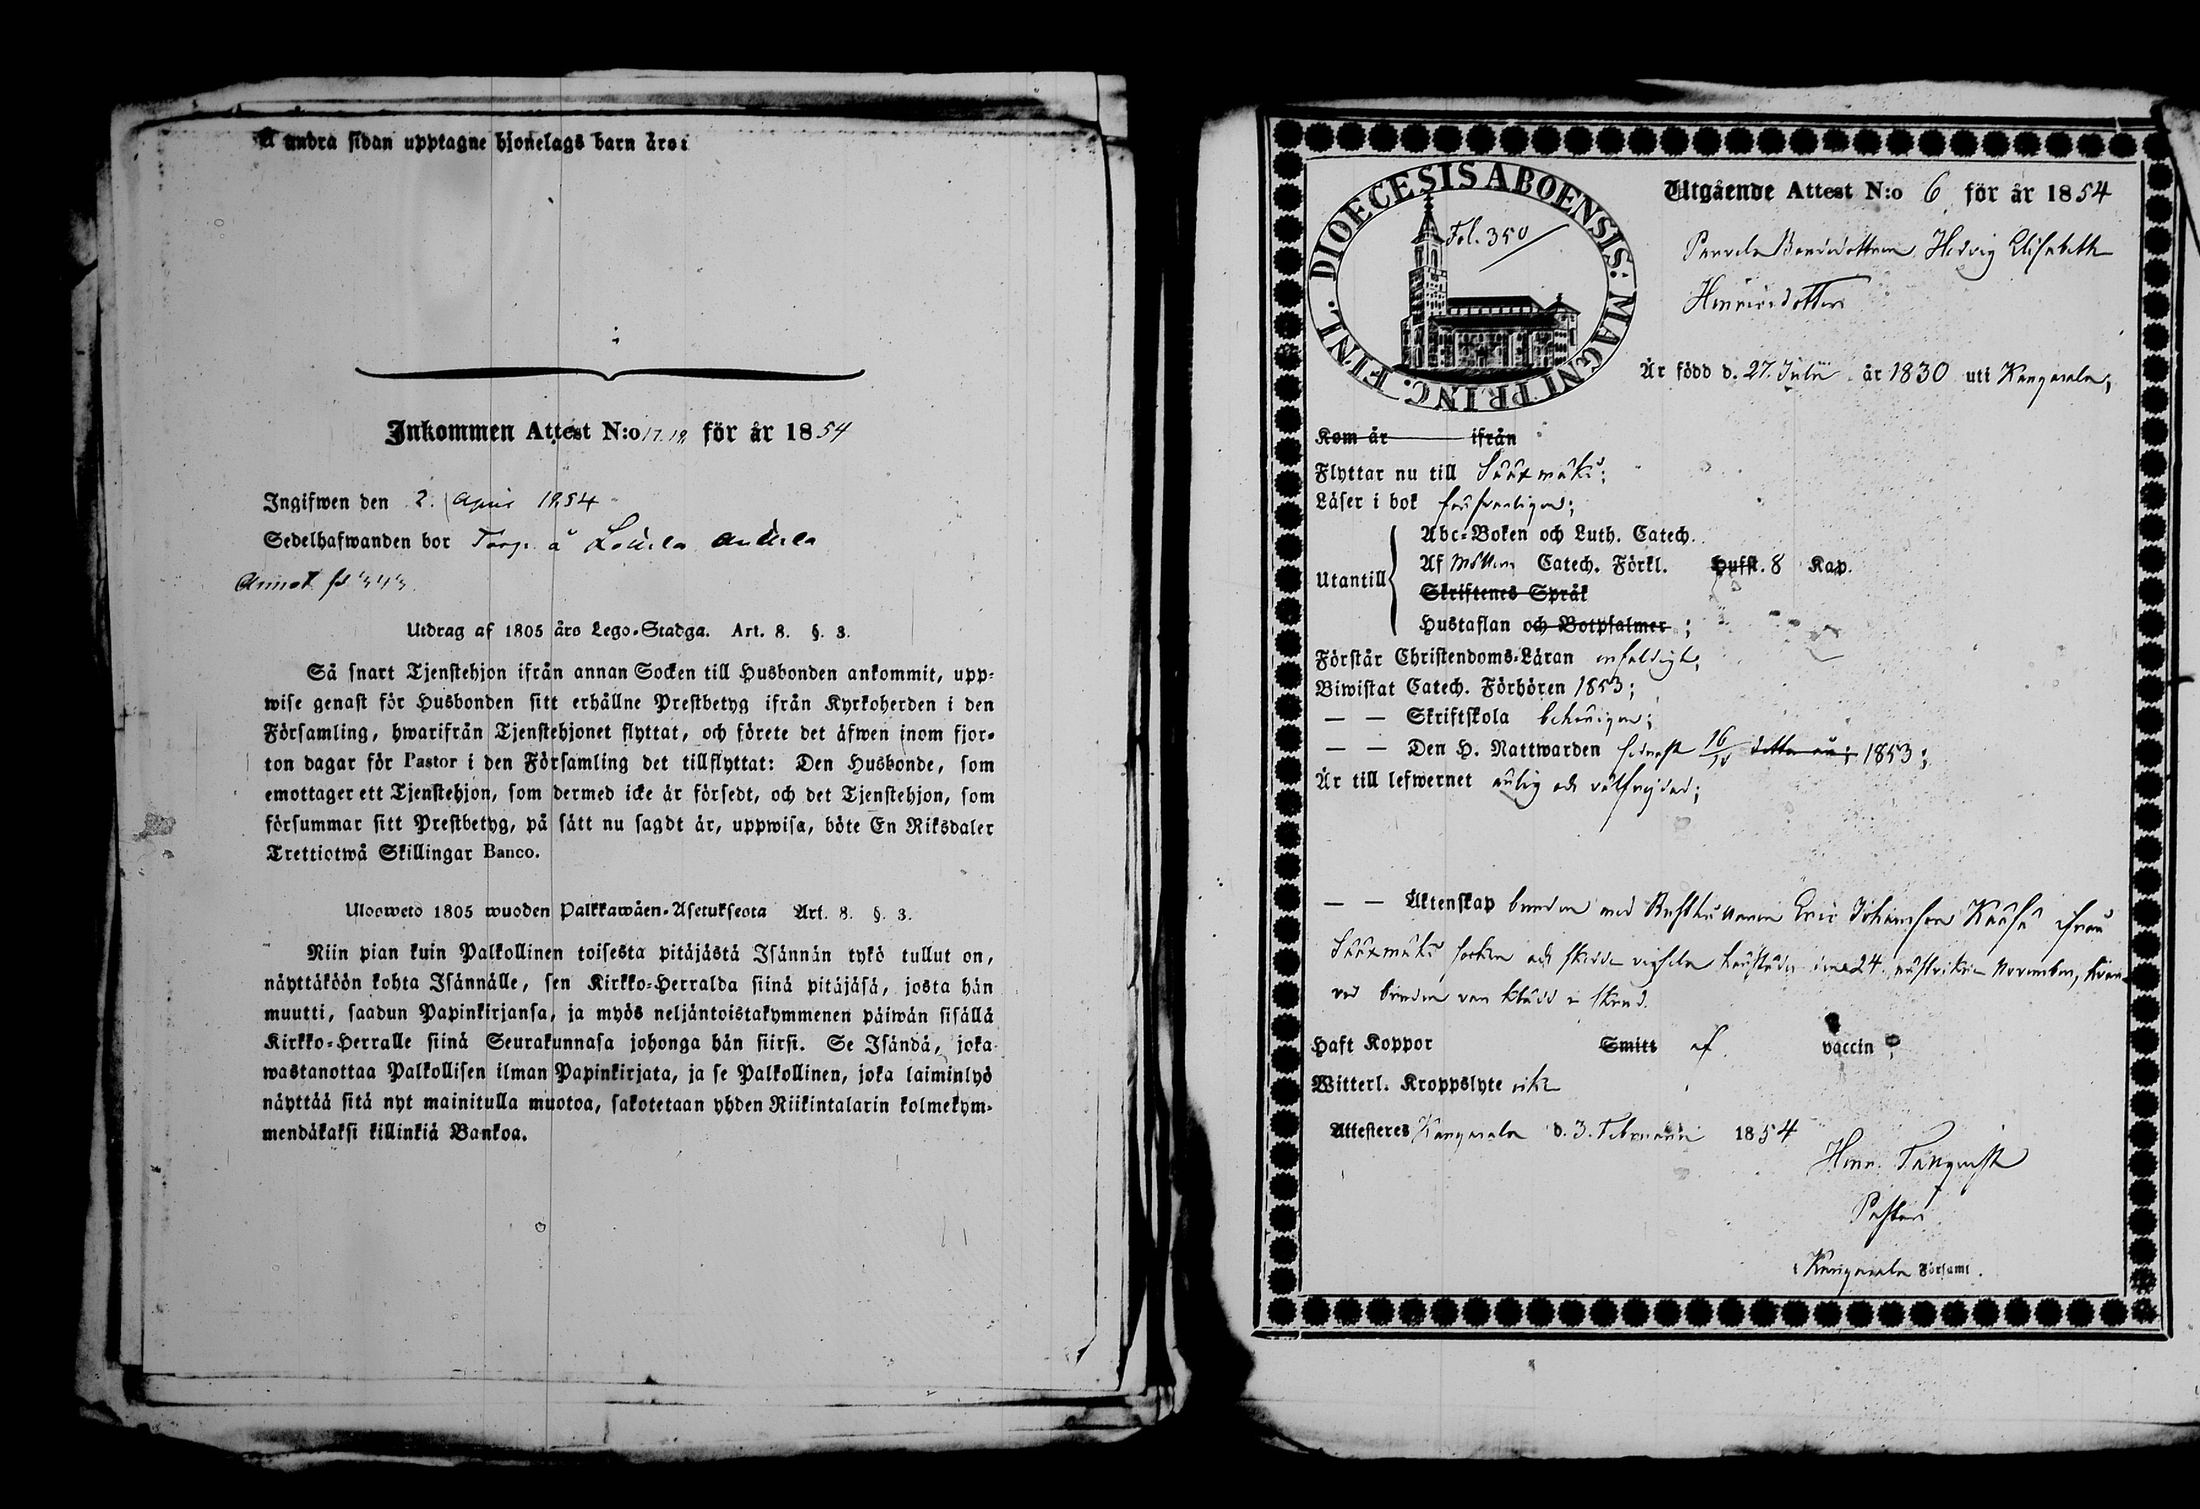 Å andra sidan upptagne hjonelags barn äro:
Inkommen Attest N:o 17. 18 för år 1854
Ingifwen den 2. April 1854
Sedelhafwanden bor Torp. å
Annot. fol 343
Utdrag af 1805 års Lego-Stadga. Art. 8. §. 3.
Så snart Tjenstehjon ifrån annan Socken till Husbonden ankommit, upp-
wise genast för Husbonden sitt erhållne Prestbetyg ifrån Kyrkoherden i den
Församling, hwarifrån Tjenstehjonet flyttat, och förete det äfwen inom fjor-
ton dagar för Pastor i den Församling det tillflyttat: Den Husbonde, som
emottager ett Tjenstehjon, som dermed icke är försedt, och det Tjenstehjon, som
försummar sitt Prestbetyg, på sätt nu sagdt är, uppwisa, böte En Riksdaler
Trettiotwå Skillingar Banco.
Uloswető 1805 wuoden Palkkawäen-Asetuksesta Art. 8. §. 3.
Niin pian kuin Palkollinen toisesta pitäjästä Isännän tykö tullut on,
näyttäköön kohta Isännälle, sen Kirkko-Herralda siinä pitäjäsä, josta hän
muutti, saadun Papinkirjansa, ja myös neljäntoistakymmenen päiwän sisällä
Kirkko-Herralle siinä Seurakunnasa johonga hän siirsi. Se Isändä, joka
wastanottaa Palkollisen ilman Papinkirjata, ja se Palkollinen, joka laiminlyö
näyttää sitä nyt mainitulla muotoa, sakotetaan yhden Riikintalarin kolmekym-
mendäkaksi killinkiä Bankoa.
DIOECESIS ABOENSIS: MAGNI PRINC. FINL.
Fol. 350
Utgående Attest N:o 6 för år 1854
Bondedottren Hedvig Elisabeth
Henricsdotter
Är född d. 27. Julii år 1830 uti Kangasala;
Kom år ifrån
Flyttar nu till Sääxmäki;
Läser i bok försvarligen;
Utantill
Abc-Boken och Luth. Catech.
Af Möllers Catech. Förkl. Hufst. 8 Kap.
Skriftenes Språk
Hustaflan och Botpsalmer;
Förstår Christendoms-Läran enfaldigt;
Biwistat Catech. Förhören 1853;
— — Skriftskola behörigen;
— — Den H. Nattwarden sednast 16/10 detta år; 1853;
Är till lefwernet ärlig och välfrejdad;
— — Äktenskap bunden med Rusthållaren Eric Johansson ifrån
Sääxmäki socken och skedde vigseln den 24. November,
vid bruden var klädd i skrud.
Haft Koppor Smitt af vaccin;
Witterl. Kroppslyte icke
Attesteres Kangasala d. 3. Februarii 1854
Henr. Tallqvist
Pastor
i Kangasala Församl.